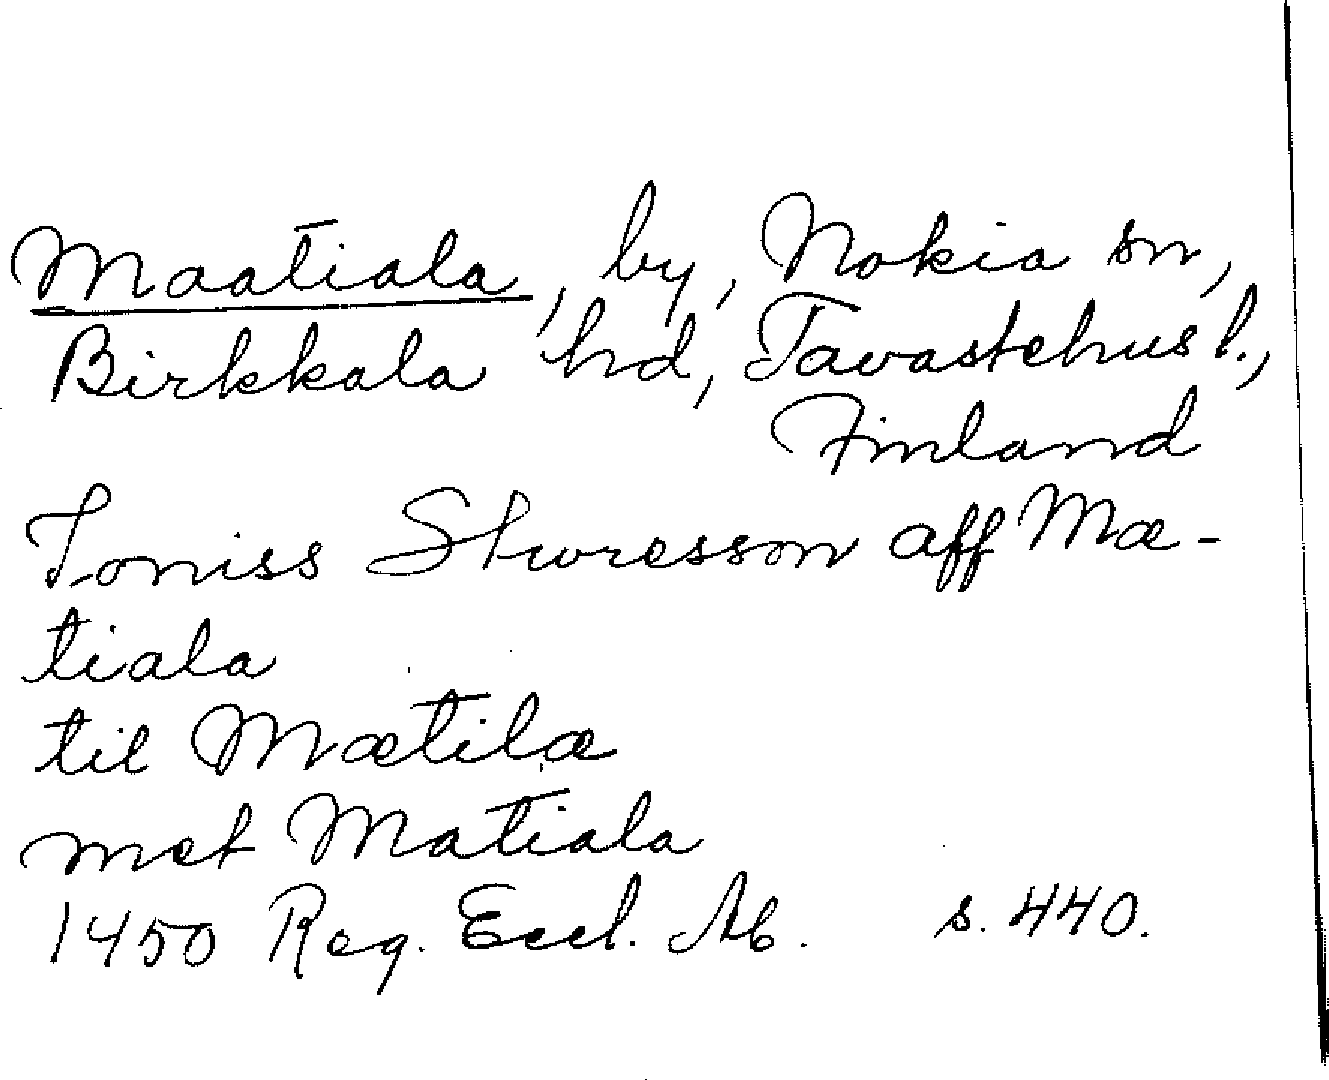 Maatiala, by, Nokia sn,
Birkkala hd, Tavastehus l.,
Finland
Toniss Sturesson aff Mæ-
tiala
til Mætilæ
met Matiala
1450 Reg. Eccl. Ab. s. 440.